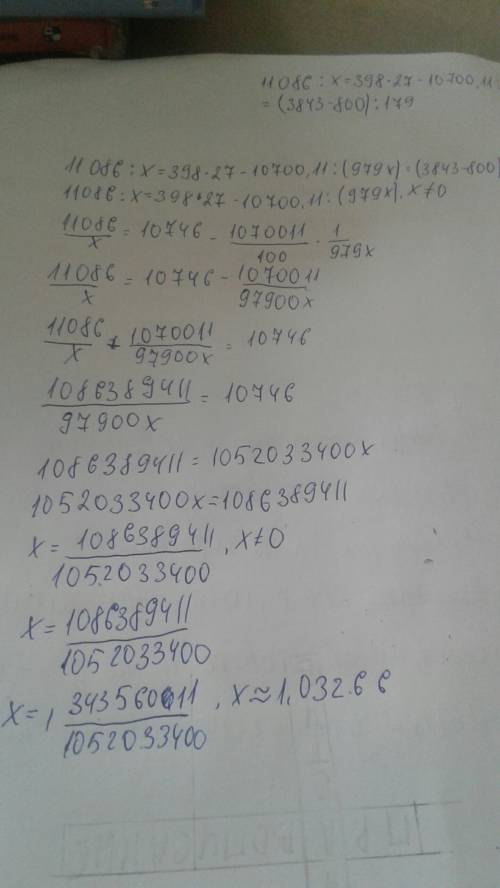 11086 : x = 398·27 - 10700,11 :
= (3843-800) : 179
11086 : x = 398·27 - 10700,11 : (979x) = (3843-800)
11086 : x = 398·27 - 10700,11 : (979x), x≠0
11086/x = 10746 - 1070011/100 · 1/979x
11086/x = 10746 - 1070011/97900x
11086/x + 1070011/97900x = 10746
1086389411/97900x = 10746
1086389411 = 1052033400x
1052033400x = 1086389411
x = 1086389411/1052033400, x≠0
x = 1086389411/1052033400
x = 1 34356011/1052033400, x ≈ 1,03266